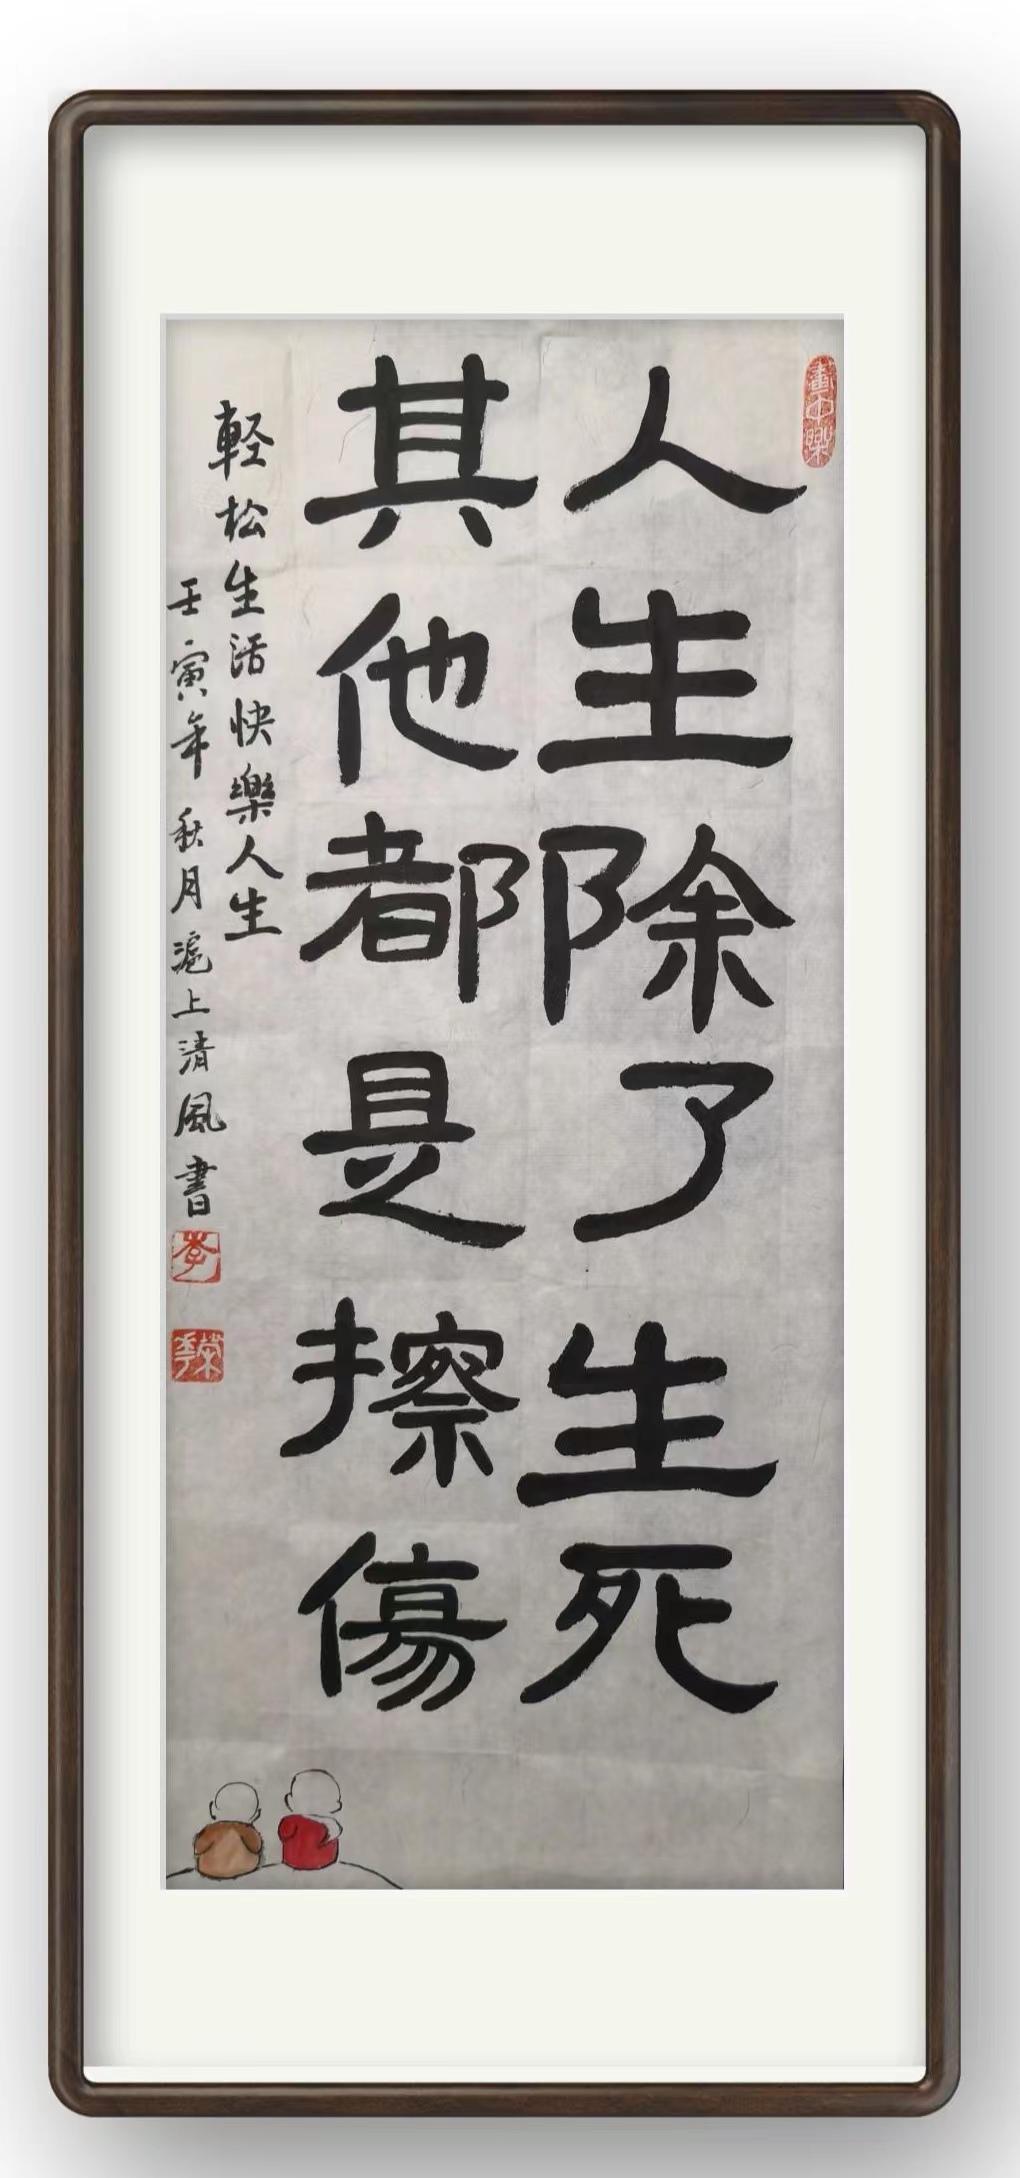 人生除了生死
其他都是擦傷
軽松生活快樂人生
壬寅年秋月滬上清風書
李